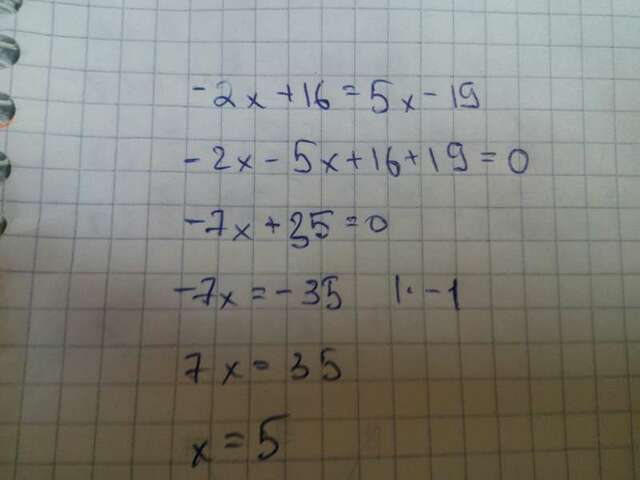 -2x+16=5x-19
-2x-5x+16+19=0
-7x+35=0
-7x=-35 |·-1
7x=35
x=5